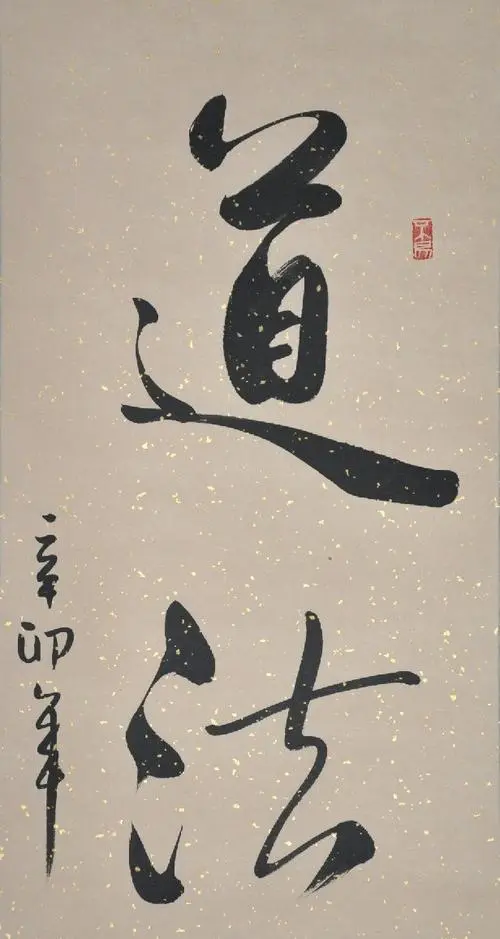 道法
辛卯年